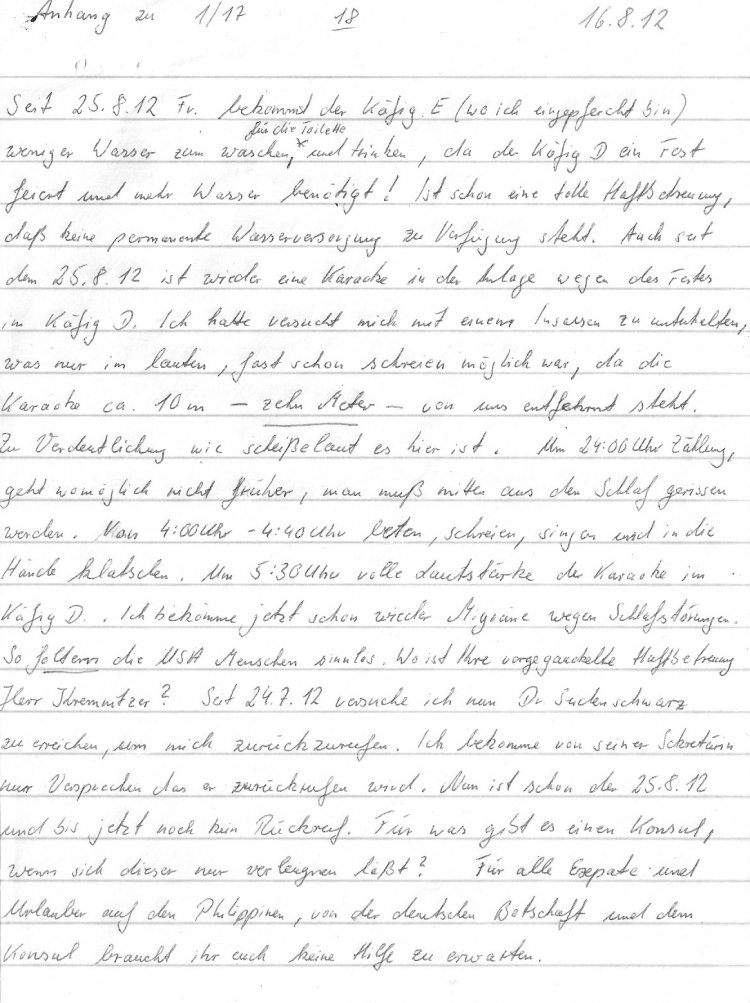 Anhang zu 1/17 18 16.8.12
Seit 25.8.12 Fr. bekommt der Käfig E (wo ich eingepfercht bin)
für die Toilette
weniger Wasser zum waschen,* und trinken, da der Käfig D ein Fest
feiert und mehr Wasser benötigt! Ist schon eine tolle Haftbetreuung,
daß keine permanente Wasserversorgung zu Verfügung steht. Auch seit
dem 25.8.12 ist wieder eine Karaoke in der Anlage wegen des Festes
im Käfig D. Ich hatte versucht mich mit einem Insassen zu unterhalten,
was nur im lauten, fast schon schreien möglich war, da die
Karaoke ca. 10m – zehn Meter – von uns entfehrnt steht.
Zu Verdeutlichung wie scheißelaut es hier ist. Um 24:00 Uhr Zählung,
geht womöglich nicht früher, man muß mitten aus den Schlaf gerissen
werden. Von 4:00 Uhr - 4:40 Uhr beten, schreien, singen und in die
Hände klatschen. Um 5:30 Uhr volle Lautstärke der Karaoke im
Käfig D. . Ich bekomme jetzt schon wieder Migräne wegen Schlafstörungen.
So foltern die USA Menschen sinnlos. Wo ist Ihre vorgegauckelte Haftbetreuung
Herr Kremnitzer? Seit 24.7.12 versuche ich nun Dr Seidenschwarz
zu erreichen, um mich zurückzurufen. Ich bekomme von seiner Sekretärin
nur Versprechen das er zurückrufen wird. Nun ist schon der 25.8.12
und bis jetzt noch kein Rückruf. Für was gibt es einen Konsul,
wenn sich dieser nur verleugnen läßt? Für alle Exepate und
Urlauber auf den Philippinen, von der deutschen Botschaft und dem
Konsul braucht ihr euch keine Hilfe zu erwarten.